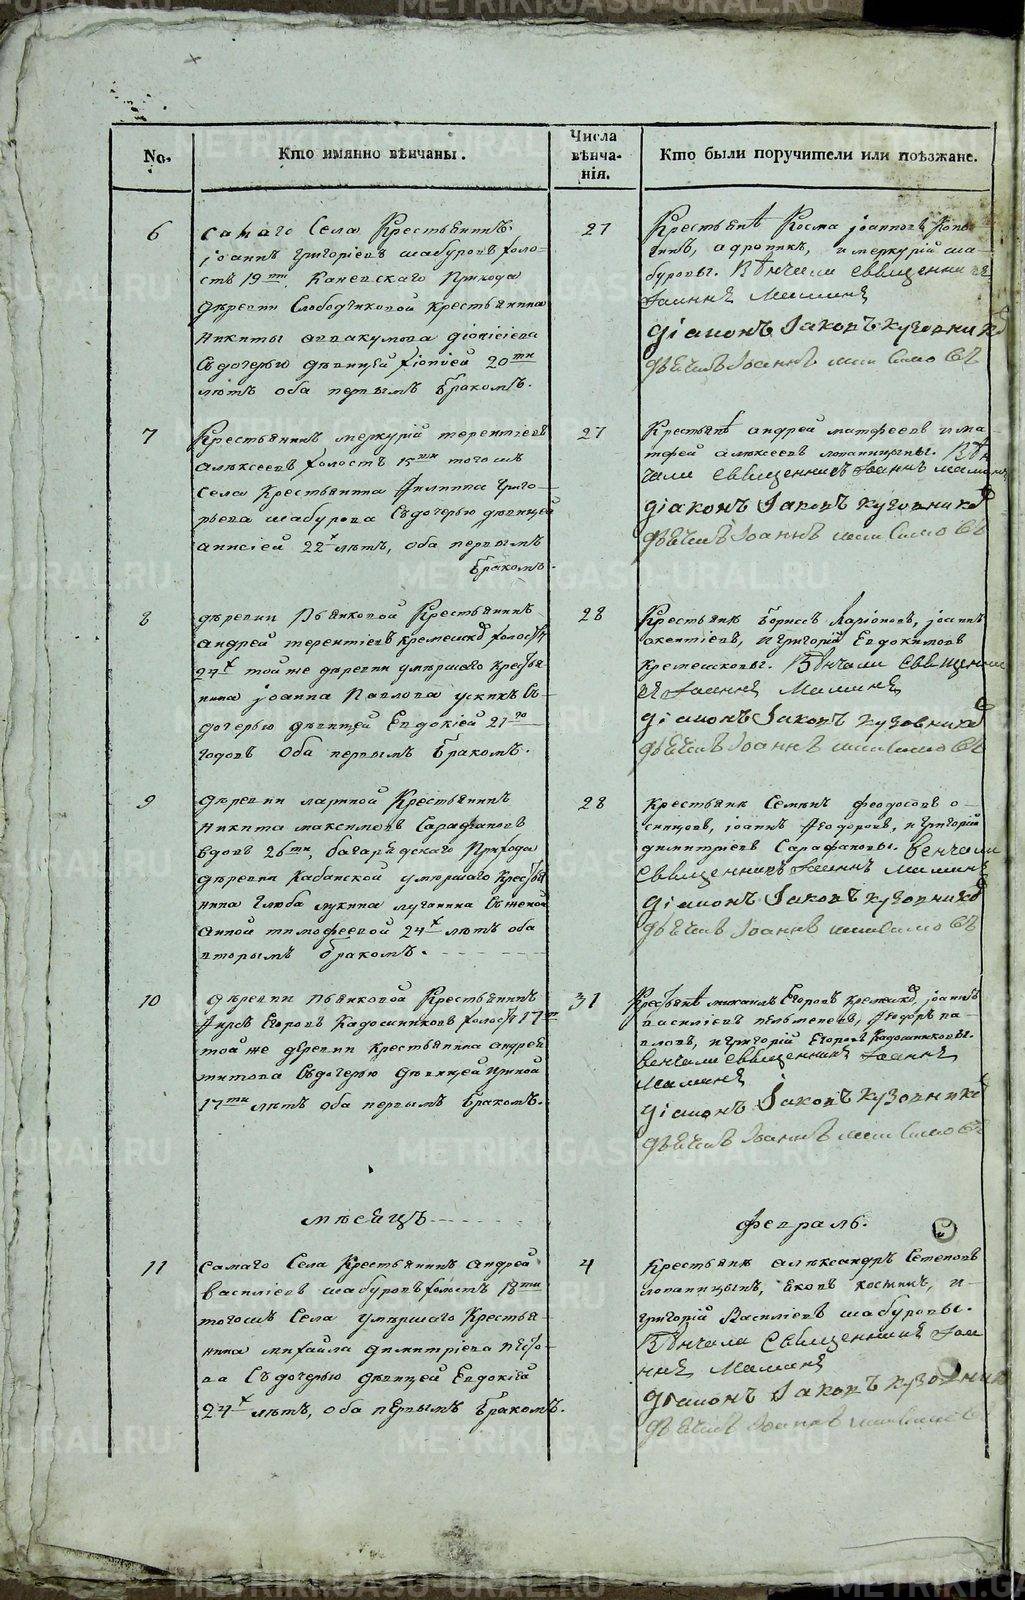 No.
Кто имянно вѣнчаны.
Числа
вѣнча-
нія.
Кто были поручители или поѣзжане.
6
самаго Села Крестьянинъ
іоаннъ григоріевъ шабуровъ холо-
стъ 19ти, Каневскаго Прихода
дѣревни Слободчиковой крестьянина
никиты аввакумова діонисіева
съ дочерью дѣвицей 20ти
лѣтъ оба первымъ бракомъ.
27
Крестьянѣ Косма іоанновъ
и меркурій ша-
буровы. Вѣнчали свѣщенникъ
Іоаннъ Маминъ
діаконъ Іаковъ Кузовниковъ
дьячикъ Іоаннъ
7
Крестьянинъ меркурій терентіевъ
алѣксеевъ холостъ тогожъ
села Крестьянина Филиппа григо-
рьева шабурова съ дочерью дѣвицей
анисіей 22х лѣтъ, оба первымъ
бракомъ.
27
Крестьянѣ андрей матфеевъ и ма-
тфей алѣксеевъ Вѣн-
чали свѣщенникъ Іоаннъ Маминъ
діаконъ Іаковъ Кузовниковъ
дьячикъ Іоаннъ
8
дѣревни Пьянковой Крестьянинъ
андрей терентіевъ холостъ
24х той же дѣревни умѣршаго крестья-
нина іоанна Павлова съ
дочерью дѣвицей Евдокіей 21го
годовъ Оба первымъ бракомъ.
28
Крестьянѣ Борисъ Ларіоновъ, іоаннъ
и григорій Евдокимовъ
Вѣнчали свѣщенни-
къ Іоаннъ Маминъ
діаконъ Іаковъ Кузовниковъ
дьячикъ Іоаннъ
9
дѣревни лариной Крестьянинъ
никита максимовъ Сарафановъ
вдовъ 26ти, багарядскаго Прихода
дѣревни Кабанской умѣршаго Крестья-
нина глѣба лукина съ женой
анной тимофеевой 24х лѣтъ оба
вторымъ бракомъ.
28
Крестьянѣ Семенъ феодосовъ о-
синцовъ, іоаннъ Феодоровъ, и григорій
димитріевъ Сарафановы. Венчали
Свѣщенникъ Іоаннъ Маминъ
діаконъ Іаковъ Кузовниковъ
дьячикъ Іоаннъ
10
дѣревни Пьянковой Крестьянинъ
Фирсъ Егоровъ Кадошниковъ холостъ 17ти
той же дѣревни крестьянина андрея
титова съ дочерью дѣвицей Ириной
17ти лѣтъ оба первымъ бракомъ.
31
Крестьянѣ михаилъ Егоровъ іоаннъ
василіевъ Феодоръ па-
вловъ, и григорій Егоровъ Кадошниковы.
Венчали Свѣщенникъ Іоаннъ
Маминъ
діаконъ Іаковъ Кузовниковъ
дьячикъ Іоаннъ
мѣсяцъ
февраль.
11
самаго Села Крестьянинъ андрей
василіевъ шабуровъ холостъ 18ти
тогожъ Села умѣршаго Крестья-
нина михайла димитріева
съ дочерью дѣвицей Евдокіей
24х лѣтъ, оба первымъ бракомъ.
4
Крестьянѣ алѣксандръ Семеновъ
Яковъ и
григорій Василіевъ шабуровы.
Вѣнчали Свѣщенникъ Іоа-
ннъ Маминъ
діаконъ Іаковъ Кузовниковъ
дьячикъ Іоаннъ
METRIKI.GASU-URAL.RU